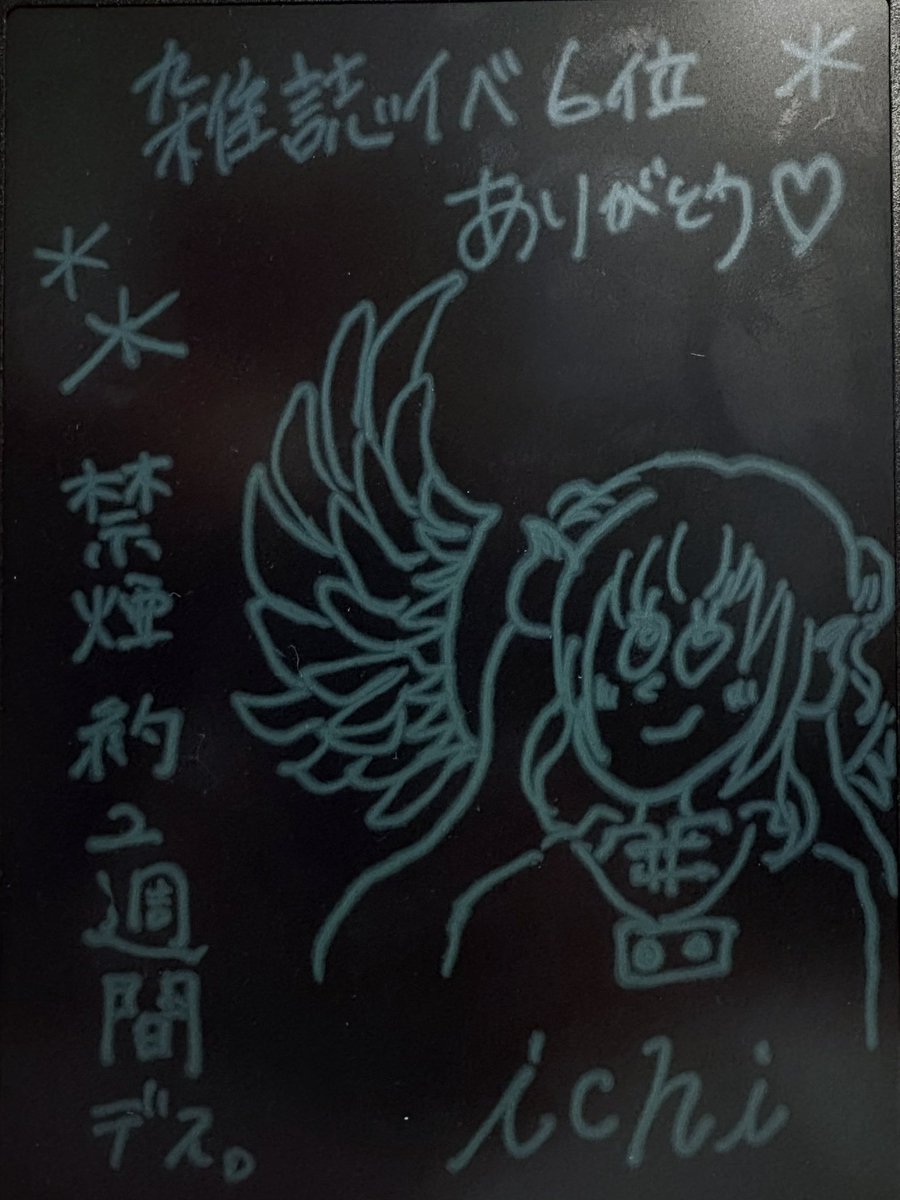 雑誌イベ6位
ありがとう♡
禁煙約2週間デス。
ichi